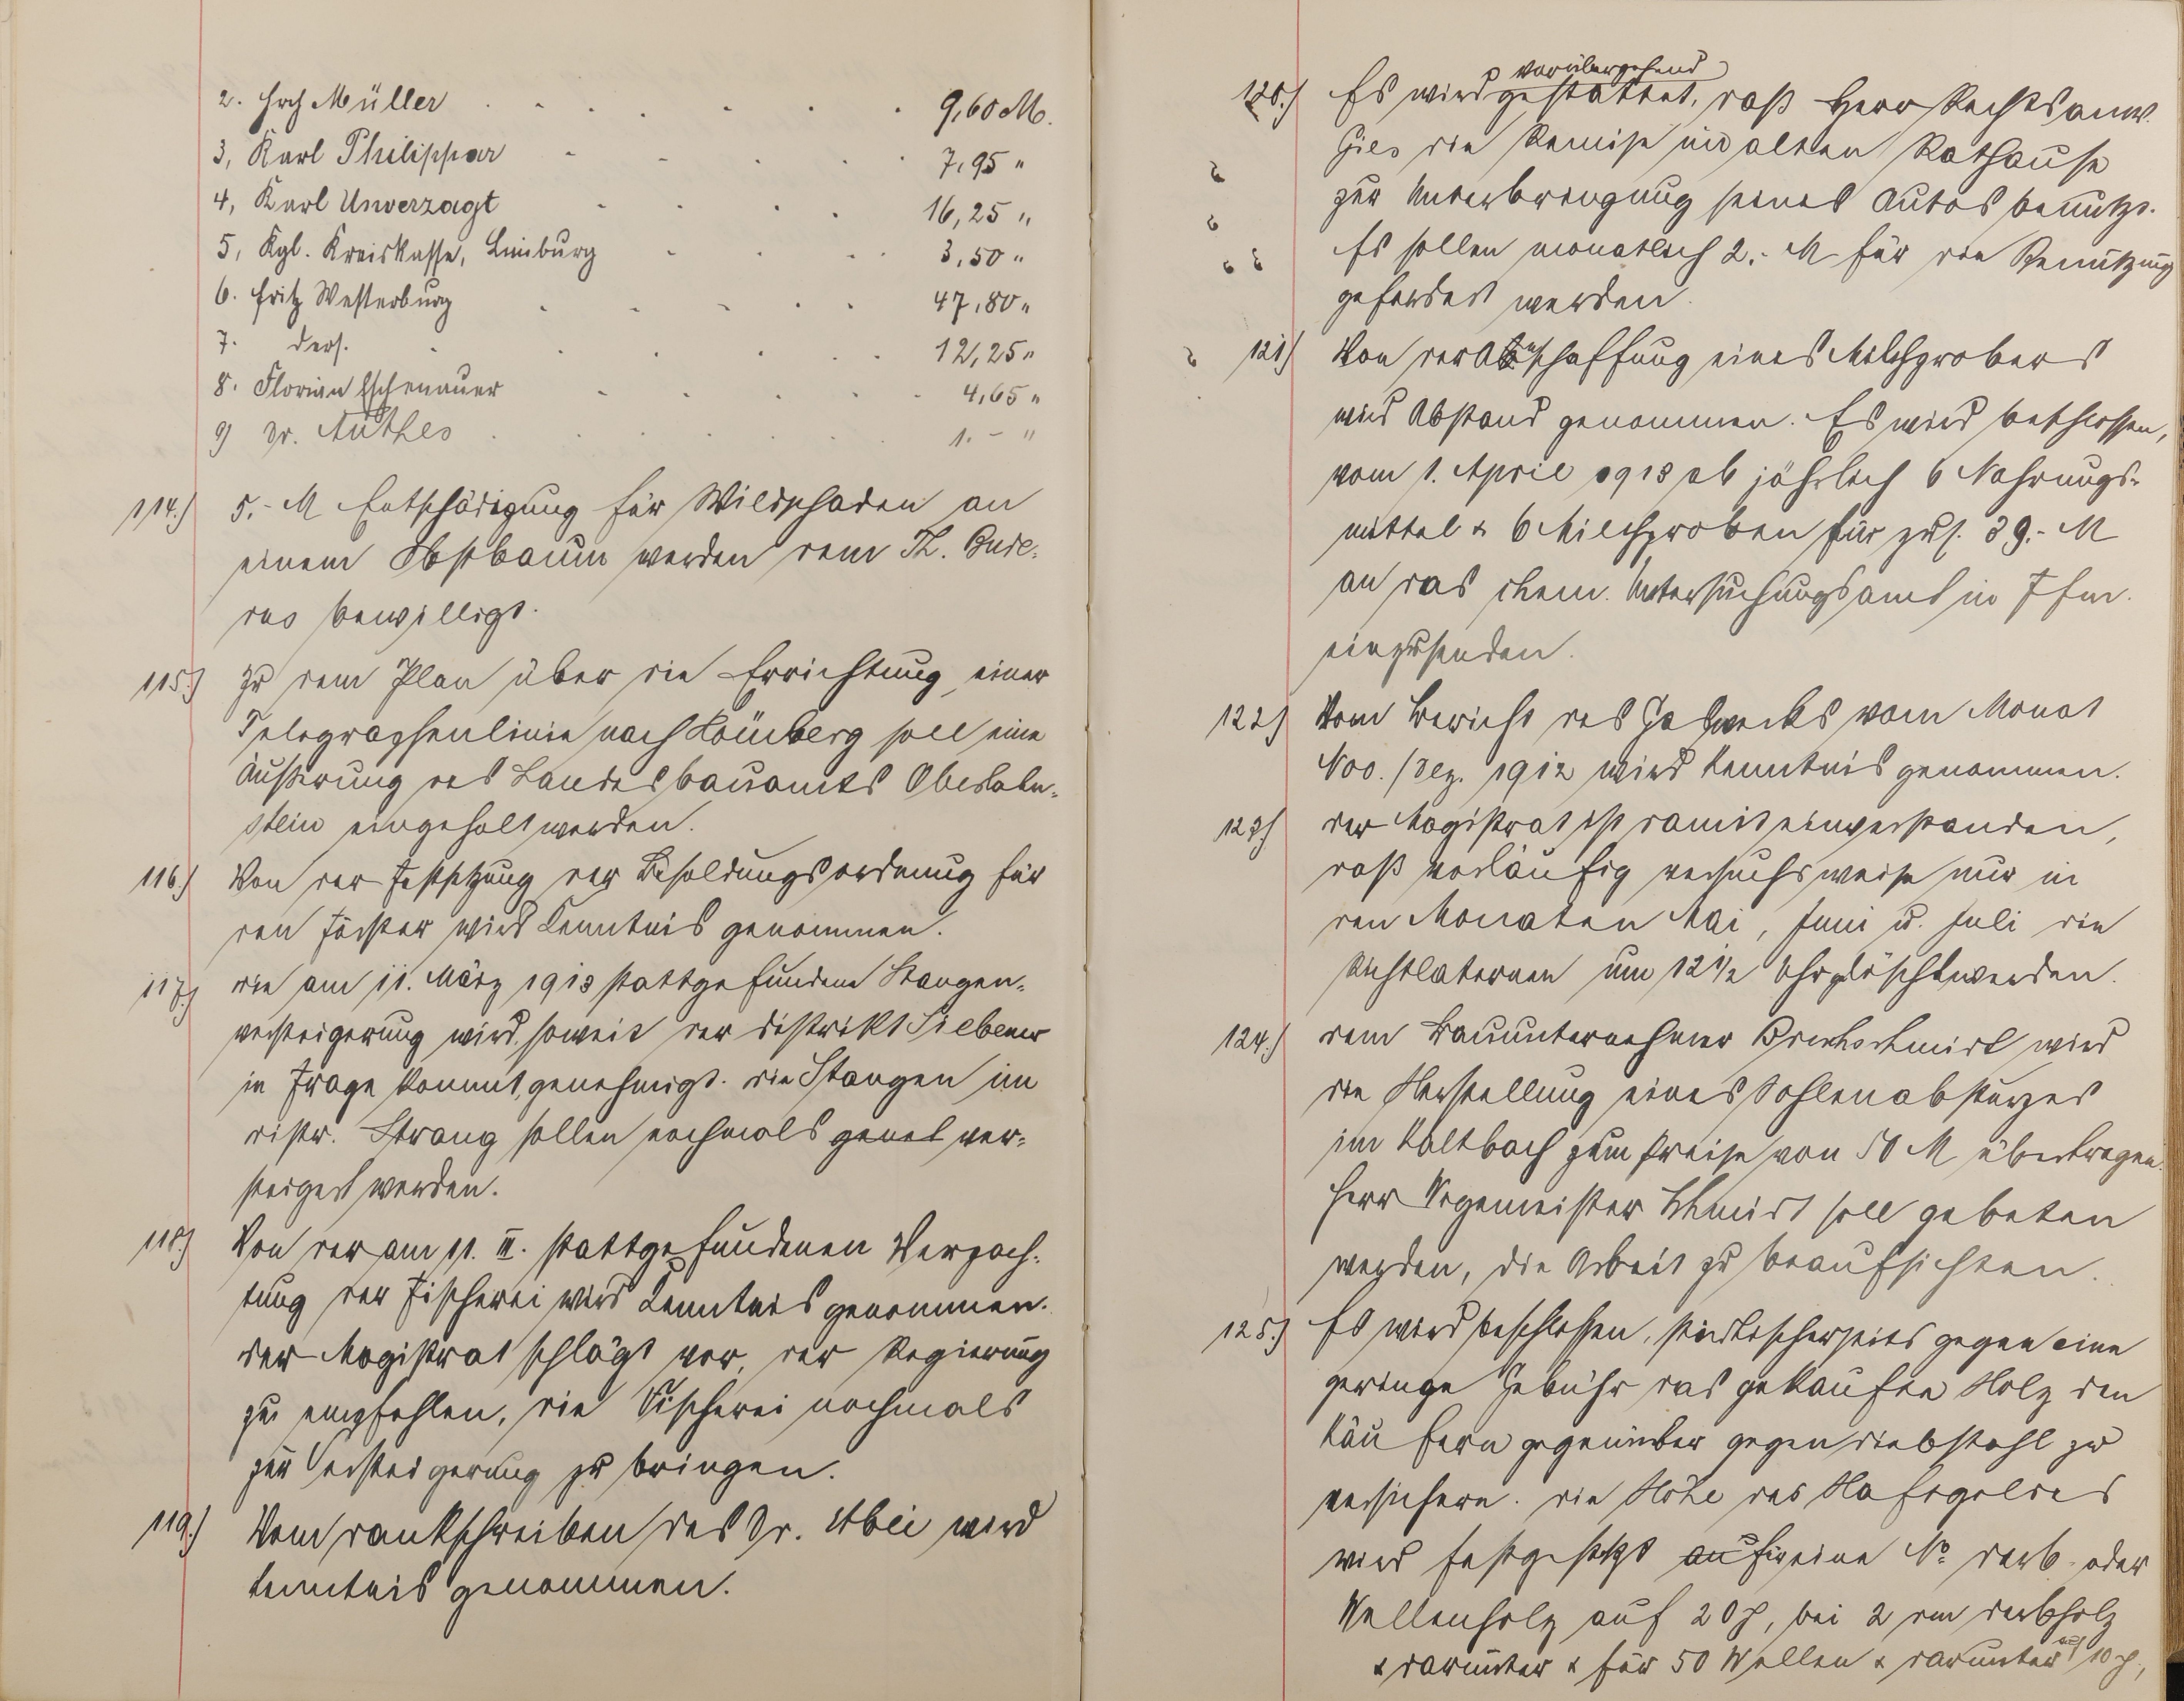 2. Hrch Müller . . . . . . 9,60 M.
3, Karl Philippar - - . . . 7,95 "
4, Karl Unverzagt - . . . 16,25 "
5, Kgl. Kreiskasse, Limburg - . . . 3,50 "
6. Fritz Westerburg . . . . . 47,80 "
7. ders. . . . . . 12,25 "
8. Florian Eschenauer - . . . . 4,65 "
9) Dr. Anthes . . . . . . 1.- "
114.) 5.- M Entschädigung für Wildschaden an
einem Obstbaum werden dem Th. Bude-
rus bewilligt.
115.) Zu dem Plan über die Errichtung einer
Telegraphenlinie nach Löhnberg soll eine
Äußerung des Landesbauamtes Oberlahn-
stein eingeholt werden.
116.) Von der Festsetzung der Besoldungsordnung für
den Förster wird Kenntnis genommen.
117.) Die am 11. März 1913 stattgefundene Stangen-
versteigerung wird, soweit der Distrikt Silbener
in Frage kommt, genehmigt. Die Stangen im
Distr. Strang sollen nochmals genel ver-
steigert werden.
118.) Von der am 11. III. stattgefundenen Verpach-
tung der Fischerei wird Kenntnis genommen.
Der Magistrat schlägt vor, der Regierung
zu empfehlen, die Fischerei nochmals
zur Versteigerung zu bringen.
119.) Vom Dankschreiben des Dr. Abei wird
Kenntnis genommen.
vorübergehend
120.) Es wird gestattet, daß Herr Rechtsanw.
Gies die Remise im alten Rathause
zur Unterbringung seines Autos benutzt.
Es sollen monatlich 2.- M für die Benutzung
gefordert werden.
121) Von der Anschaffung eines Milchprobers
wird Abstand genommen. Es wird beschlossen,
vom 1. April 1913 ab jährlich 6 Nahrungs-
mittel & 6 Milchproben für zus. 39.- M
an das chem. Untersuchungsamt in Ffm.
einzusenden.
122) Vom Bericht des Gaswerks vom Monat
Nov./Dez. 1912 wird Kenntnis genommen.
123) Der Magistrat ist damit einverstanden,
daß vorläufig versuchsweise nur in
den Monaten Mai, Juni u. Juli die
Richtlaternen um 12 1/2 Uhr gelöscht werden.
124.) Dem Bauunternehmer wird
die Herstellung eines Sohlenabsturzes
im Kaltbach zum Preise von 50 M übertragen.
Herr Wegemeister Schmidt soll gebeten
werden, die Arbeit zu beaufsichten.
125.) Es wird beschlossen, städtischerseits gegen eine
geringe Gebühr das gekaufte Holz den
Käufern gegenüber gegen Diebstahl zu
versichern. Die Höhe des Haftgeldes
wird festgesetzt auf für eine No Derb- oder
Wellenholz auf 20 ₰, bei 2 rm Derbholz
& darunter & für 50 Wellen & darunter auf 10 ₰,